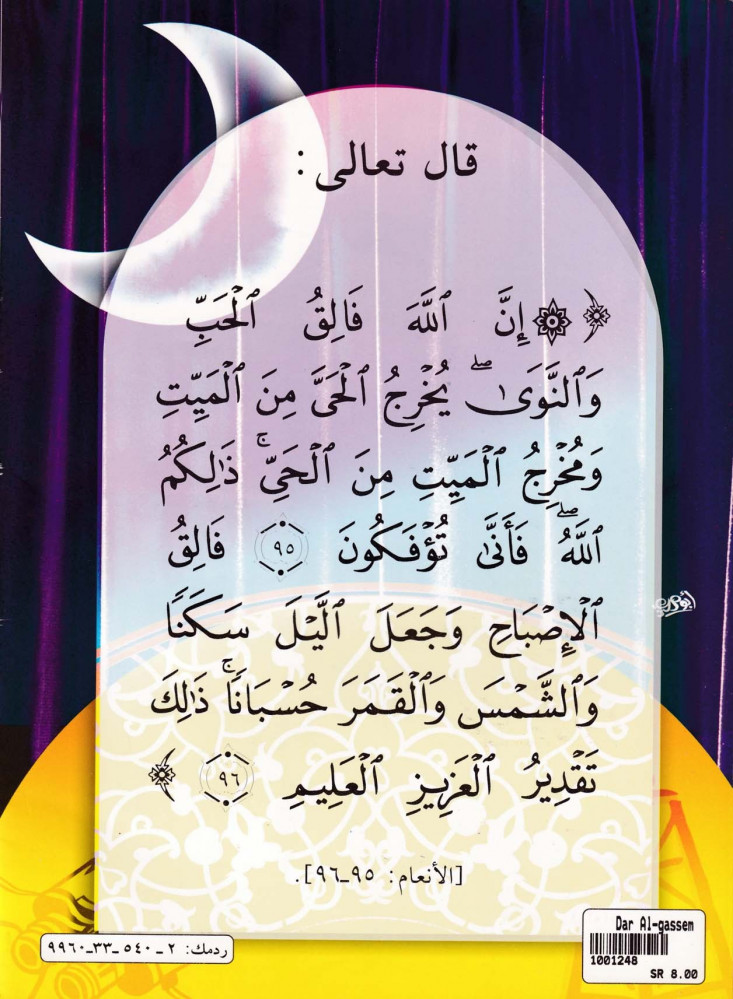 قال تعالى :
﴿ ۞ إِنَّ ٱللَّهَ فَالِقُ ٱلْحَبِّ
وَٱلنَّوَىٰ ۖ يُخْرِجُ ٱلْحَىَّ مِنَ ٱلْمَيِّتِ
وَمُخْرِجُ ٱلْمَيِّتِ مِنَ ٱلْحَىِّ ۚ ذَٰلِكُمُ
ٱللَّهُ ۖ فَأَنَّىٰ تُؤْفَكُونَ ٩٥ فَالِقُ
ٱلْإِصْبَاحِ وَجَعَلَ ٱلَّيْلَ سَكَنًا
وَٱلشَّمْسَ وَٱلْقَمَرَ حُسْبَانًا ۚ ذَٰلِكَ
تَقْدِيرُ ٱلْعَزِيزِ ٱلْعَلِيمِ ٩٦ ﴾
[الأنعام: ٩٥-٩٦].
ردمك: ٢ - ٥٤٠ - ٣٣ - ٩٩٦٠
Dar Al-gassem
1001248
SR 8.00